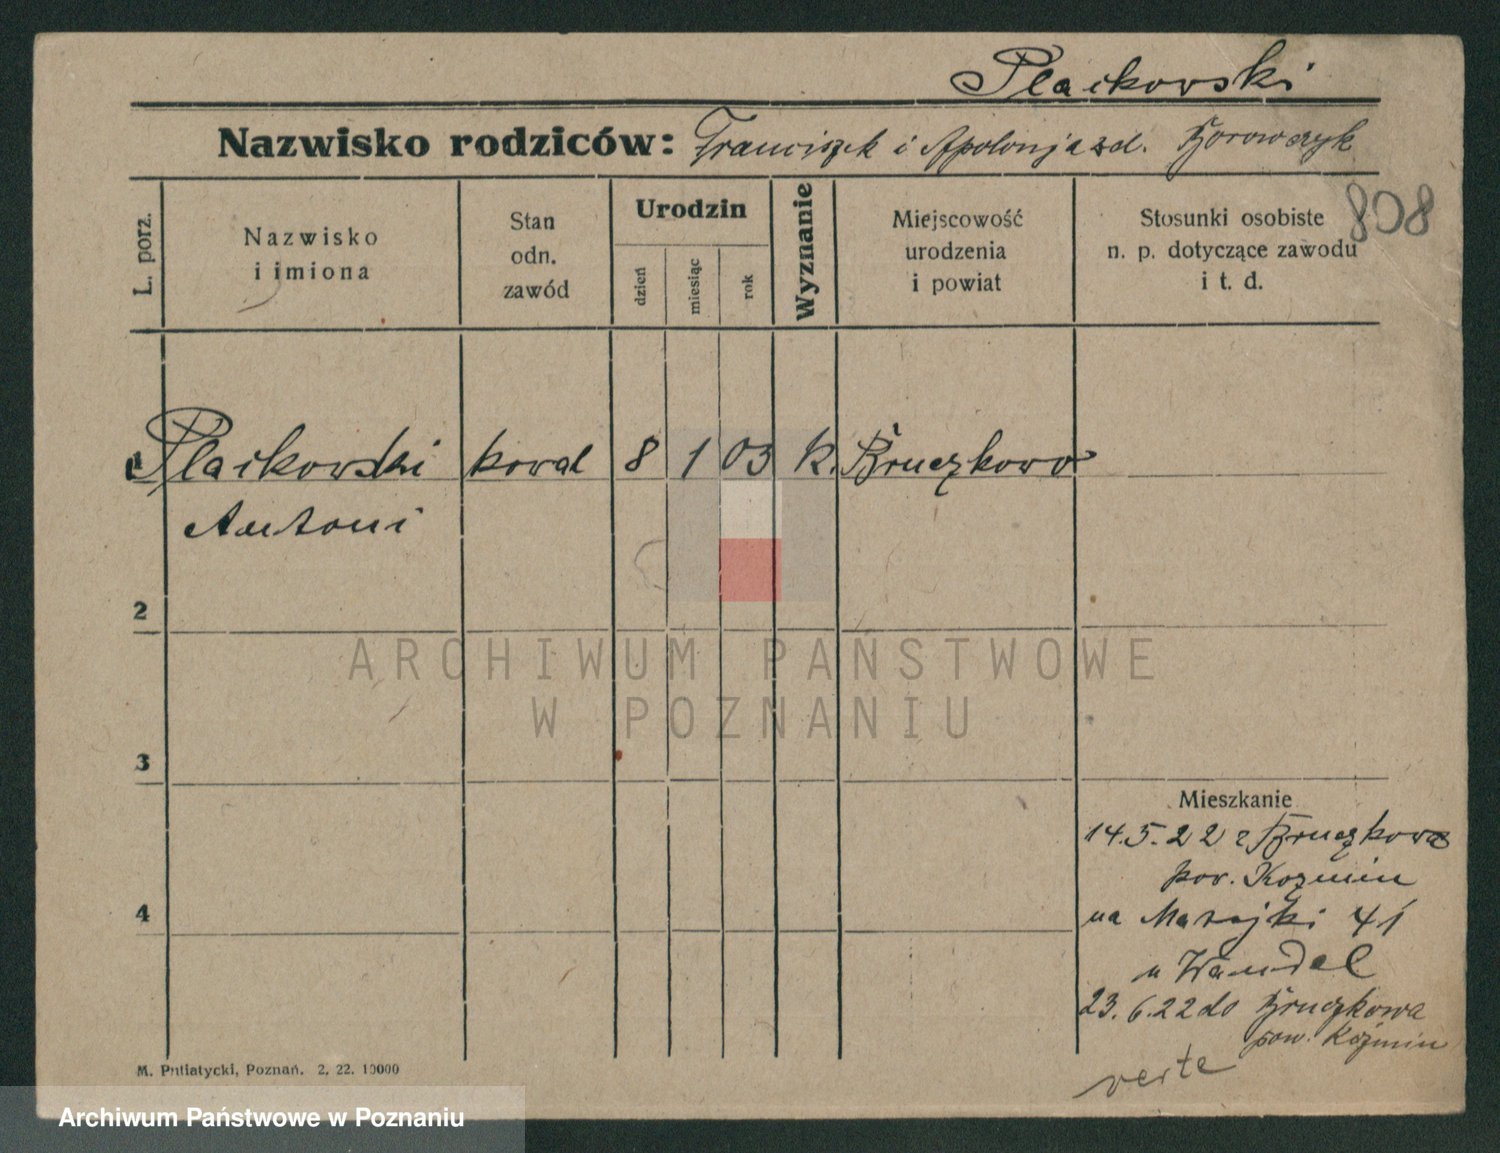 Plaikowski
Nazwisko rodziców: Franciszek i Apolonja zd. Borowczyk
808
L. porz.
Nazwisko i imiona
Stan odn. zawód
Urodzin
dzień
miesiąc
rok
Wyznanie
Miejscowość urodzenia i powiat
Stosunki osobiste n. p. dotyczące zawodu i t. d.
1 Plaikowski kowal 8 1 03 k. Bruczkowo
Antoni
2
3
4
Mieszkanie
14.5.22 z Bruczkowa
pow. Koźmin
na 41
u Wandel
23.6.22 do Bruczkowa
pow. Koźmin
verte
M. Putiatycki, Poznań. 2. 22. 10000
ARCHIWUM PAŃSTWOWE
W POZNANIU
Archiwum Państwowe w Poznaniu